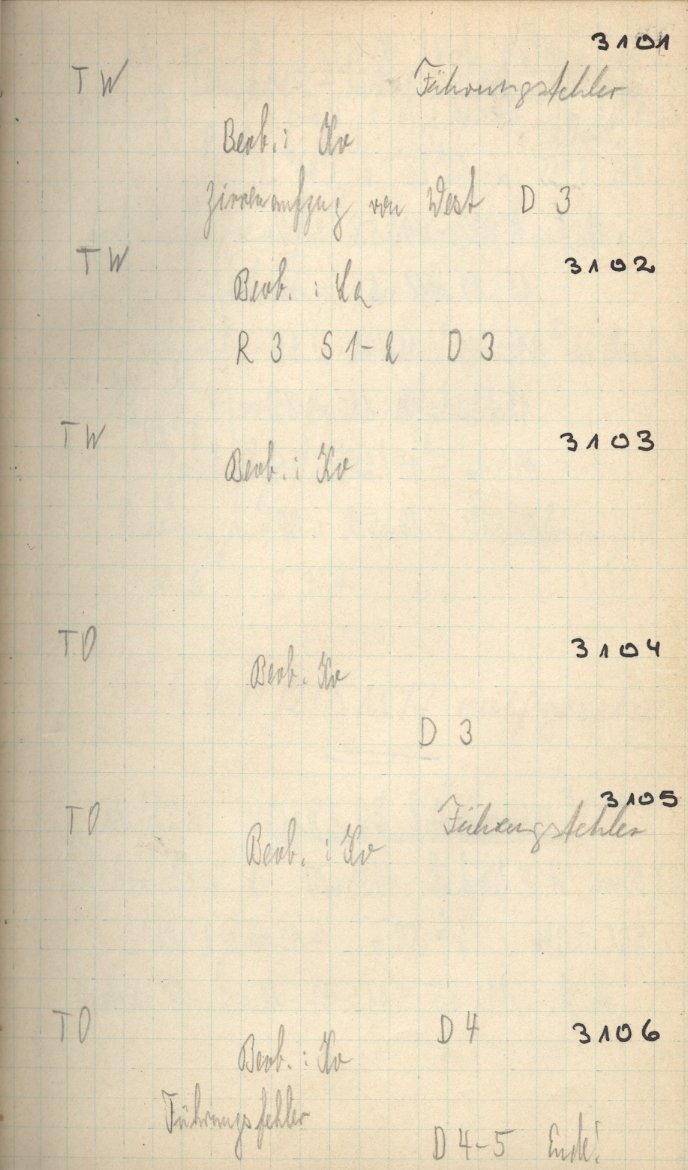 3101
TW Führungsfehler
Beob.: Ko
Zirrenaufzug von West D 3
TW 3102
Beob.: La
R 3 S 1-2 D 3
TW 3103
Beob.: Ko
TO 3104
Beob. Ko
D 3
3105
TO Führungsfehler
Beob.: Ko
TO D 4 3106
Beob.: Ko
Führungsfehler
D 4-5 Ende!